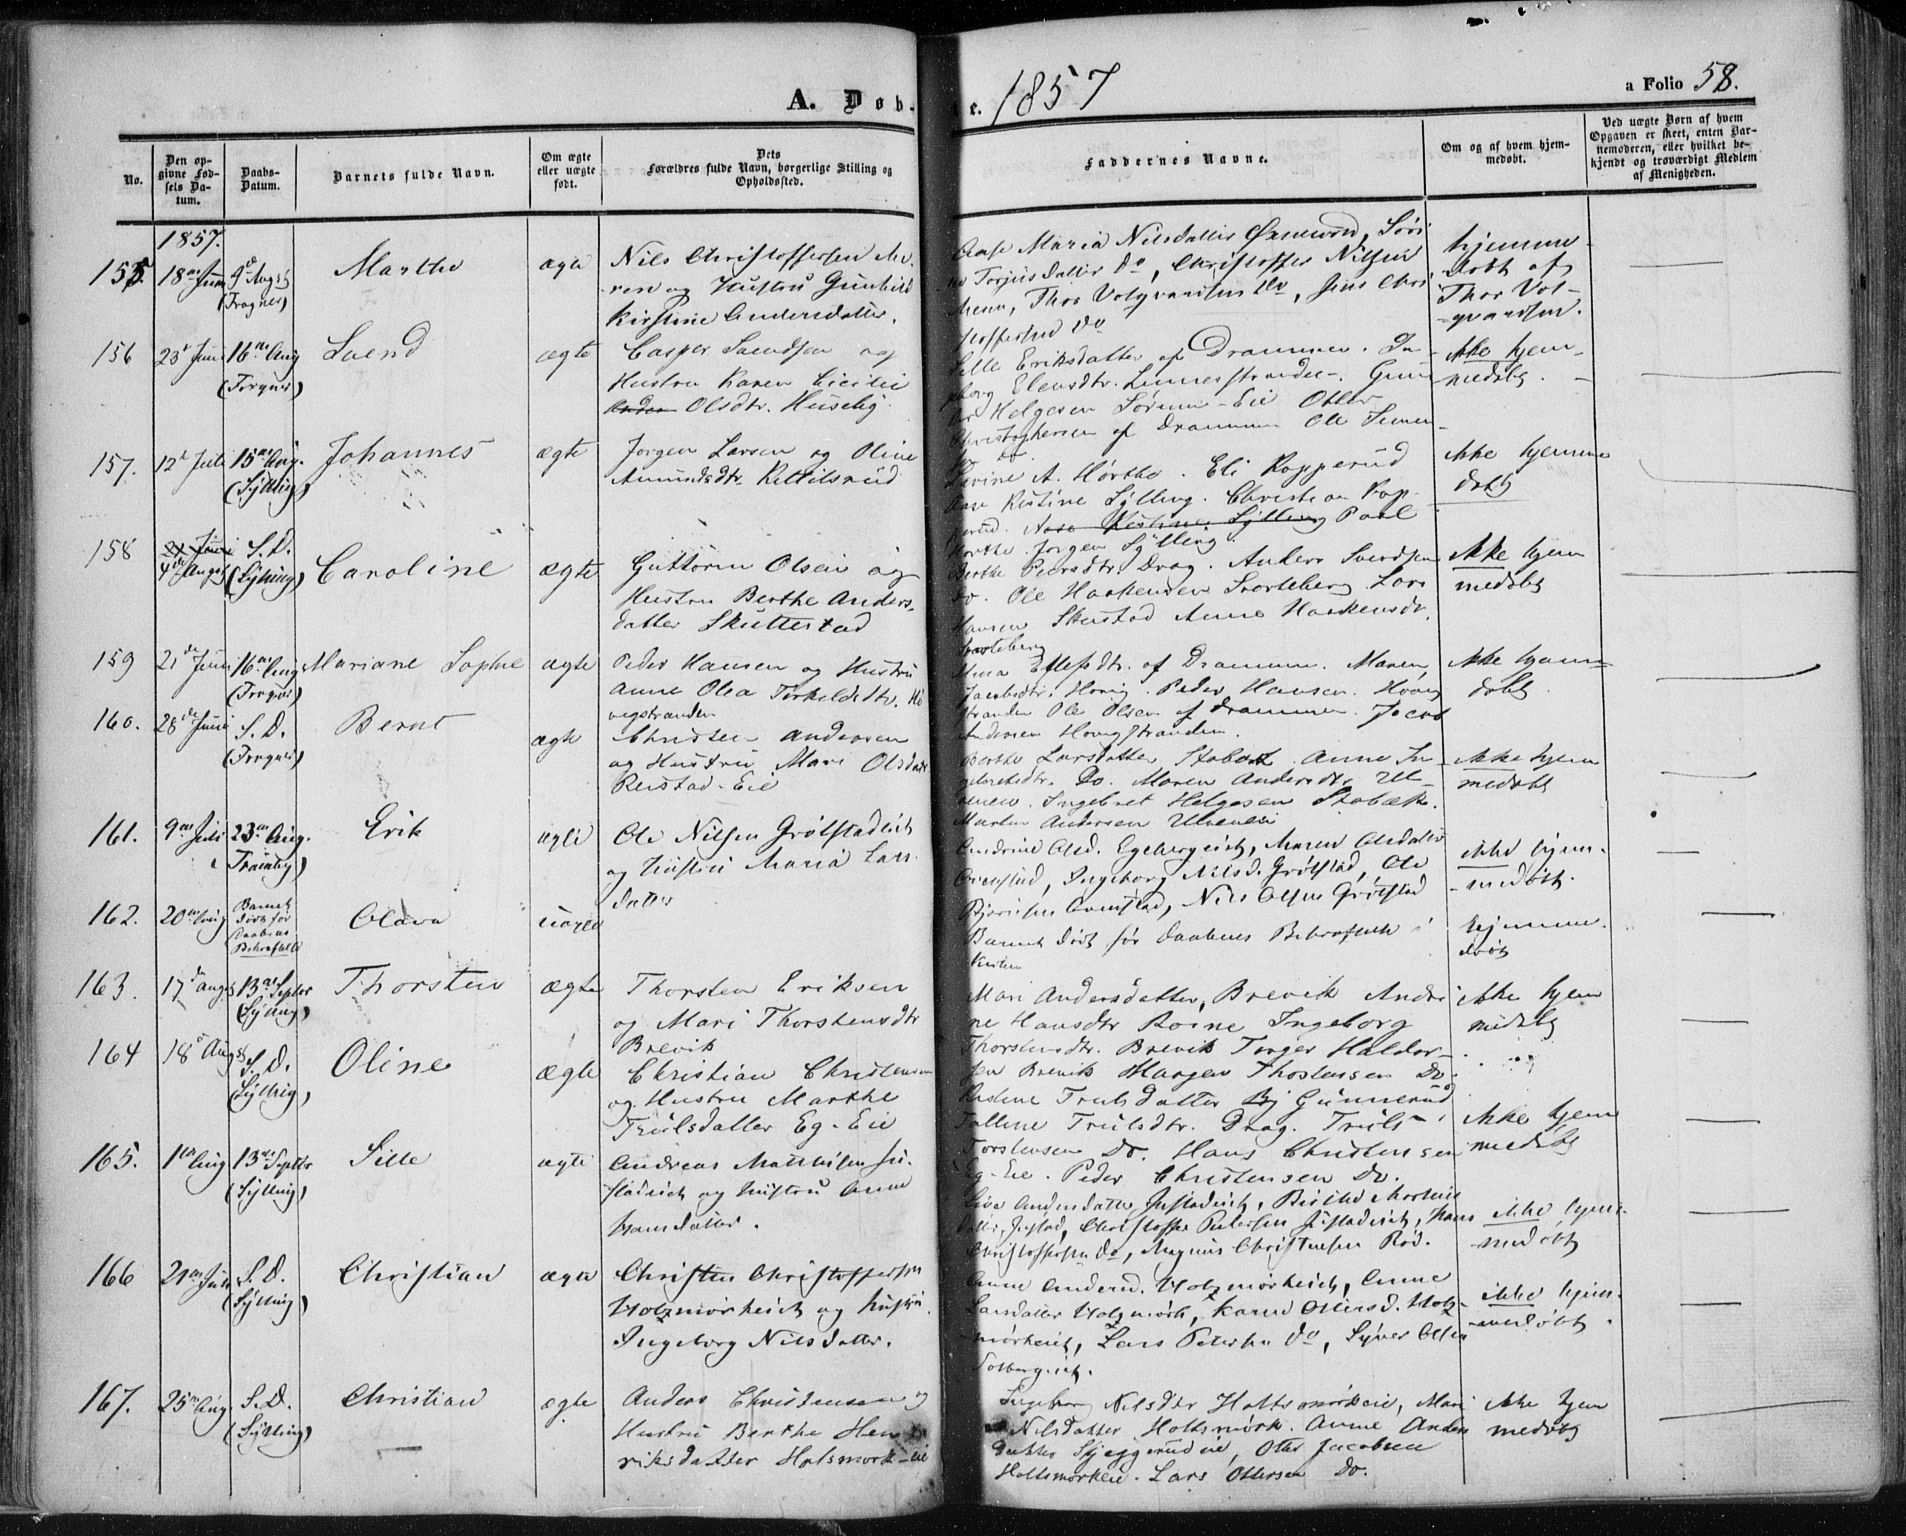 A. Døb- te. 1857
a Folio 58.
No.
Den op-
givne Fød-
sels Da-
tum.
Daabs-
Datum.
Barnets fulde Navn.
Om ægte
eller uægte
født.
Dets
Forældres fulde Navn, borgerlige Stilling og
Opholdssted.
Faddernes Navne.
Om og af hvem hjem-
medøbt.
Ved uægte Børn af hvem
Opgaven er skeet, enten Bar-
nemoderen, eller hvilket be-
kjendt og troværdigt Medlem
af Menigheden.
1857.
155 18de Juni 9de Augst
(Trognes)
Marthe
ægte
Nils Christoffersen
og Hustru Gunhild
Kirstine Andersdatter.
Aase Maria Nilsdatter
Torjusdatter Do, Christoffer Nilsen
Thor Volgvardsen Do, Jens Chri
stoffersen Do
hjemme-
døbt af
Thor Vol-
gvardsen.
156 23de Juni 16de Aug
(Trognes)
Svend
ægte
Casper Svendsen og
Hustru Karen Cicilie
Olsdtr. Huseby
Eriksdatter af Drammen. In-
geborg Elensdtr. Linnesstranden. Gun
Helgesen Sørum-Eie Otter
Christophersen af Drammen Ole Simen-
sen do.
ikke hjem-
medøbt.
157. 12te Juli 15de Aug.
(Sylling)
Johannes
ægte
Jørgen Larsen og Oline
Amundsdtr. Kittilsrud
A. Hørthe. Eli Kopperud
Kistine Sylling. Christian Kop-
perud. Paul
Hørthe. Jørgen Sylling
ikke hjemme
døbt
158 4de August S.D.
(Sylling)
Caroline
ægte
Guttorm Olsen og
Hustru Berthe Anders-
datter Skuttestad
Berthe Pedersdtr. Drag. Anders Svendsen
do. Ole Haakensen Svarteberg Lars
Hansen Skustad Anne Haakensdtr
Svarteberg
ikke hjem
medøbt
159 21de Juni 16de Aug
(Trognes)
Mariane Sophie
ægte
Peder Hansen og Hustru
Anne Olea Torkildsdtr. Hø
vigstranden
af Drammen. Maren
Jacobsdtr. Høvig. Peder Hansen. Høvig
stranden Ole Olsen af Drammen. Jacob
Andersen Høvigstranden.
ikke hjem-
døbt.
160. 28de Juni S.D.
(Trognes)
Bernt
ægte
Christen Andersen
og Hustru Mari Olsdatr
Reistad-Eie
Berthe Larsdatter Stabæk. Anne In-
gebretsdtr. Do. Maren Andersdtr Ut-
Ingebret Helgesen Stabæk.
Martin Andersen
ikke hjem
medøbt
161. 9de Juli 23de Aug.
(Tranby)
Erik
ægte
Ole Nilsen Grøtstadeiet
og Hustru Maria Lars
datter
Andrine Olsd. Egebergeiet, Maren Olsdatter
Ovenstad, Ingeborg Nilsd. Grøtstad, Ole
Ovenstad, Nils Olsen Grøtstad
ikke hjem-
medøbt.
162. 20de Aug
Barnet
døde før
Daabens
Bekræftelse
Olava
uægte
Barnet døde før Daabens Bekræftelse i
Kirken
hjemme-
døbt
163. 17de August 13de Septbr
(Sylling)
Thorsten
ægte
Thorsten Eriksen
og Mari Thorstensdtr
Brevik
Mari Andersdatter, Brevik Andri
ne Hansdtr Roine Ingeborg
Thorstensdtr. Brevik Torger Haldor-
sen Brevik Haagen Thostensen Do.
ikke hjem
medøbt
164 18de August S.D.
(Sylling)
Oline
ægte
Christian Christensen
og Hustru Marthe
Trulsdatter Eg-Eie
Kistine Trulsdatter Gunnerud
Trulsdtr. Drag. Truls
Torstensen Do. Hans Christensen
Eg-Eie. Peder Christensen Do.
ikke hjem
medøbt
165. 1ste Aug 13de Septbr
(Sylling)
Sille
ægte
Andreas Matthisen Ju-
stadeiet og Hustru Anne
Hansdatter.
Andersdatter Justadeiet, Berthe Mortens
datter, Justad, Christoffer Petersen Justadeiet, Hans
Christoffersen Do, Magnus Christensen Rød.
ikke hjem-
medøbt
166 21de Juli S.D.
(Sylling)
Christian
ægte
Christen Christoffersen
Holzmørkeiet og Hustru
Ingeborg Nilsdatter.
Anne Andersd. Holzmørkeiet, Anne
Larsdatter Holzmørk, Karen Ottersd. Holz-
mørkeiet, Lars Petersen Do, Syver Olsen
Solbergeiet.
ikke hjem-
medøbt.
167. 25de Aug. S.D.
(Sylling)
Christian
ægte
Anders Christensen og
Hustru Berthe Hen
riksdatter Holsmørk-eie
Ingeborg Nilsdtr Holtsmørkeie, Mari
Nilsdatter Holtsmørk. Anne Anders
datter Skjeggerudeie, Otter Jacobsen
Holtsmørkeie. Lars Ottersen Do.
ikke hjem
medøbt